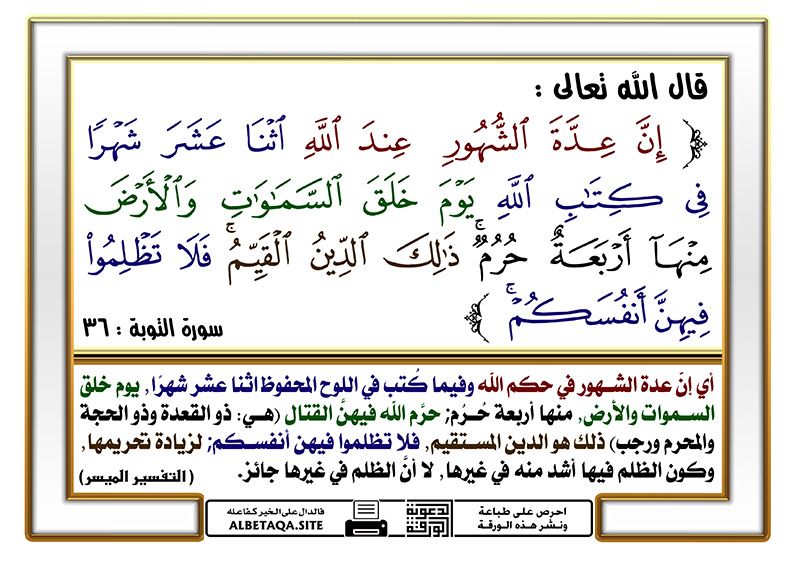 قال الله تعالى :
﴿ إِنَّ عِدَّةَ ٱلشُّهُورِ عِندَ ٱللَّهِ ٱثۡنَا عَشَرَ شَهۡرٗا
فِي كِتَٰبِ ٱللَّهِ يَوۡمَ خَلَقَ ٱلسَّمَٰوَٰتِ وَٱلۡأَرۡضَ
مِنۡهَآ أَرۡبَعَةٌ حُرُمٞۚ ذَٰلِكَ ٱلدِّينُ ٱلۡقَيِّمُۚ فَلَا تَظۡلِمُواْ
فِيهِنَّ أَنفُسَكُمۡۚ ﴾
سورة التوبة : ٣٦
أي إنّ عدة الشهور في حكم الله وفيما كُتب في اللوح المحفوظ اثنا عشر شهرًا، يوم خلق
السموات والأرض، منها أربعة حُرُم; حرَّم الله فيهنَّ القتال (هي: ذو القعدة وذو الحجة
والمحرم ورجب) ذلك هو الدين المستقيم، فلا تظلموا فيهن أنفسكم; لزيادة تحريمها،
وكون الظلم فيها أشد منه في غيرها، لا أنَّ الظلم في غيرها جائز.
(التفسير الميسر)
احرص على طباعة
ونشر هذه الورقة
الورقة
الدعوية
فالدال على الخير كفاعله
ALBETAQA.SITE